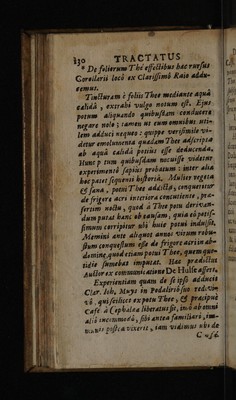 130 TRACTATUS
* De foliorum Theé effectibus hac rursus
Corollarii locò ex Clarissimo Raio addu-
cemus.
Tincturam è foliis Thee mediante aquâ
calidâ, extrahi vulgo notum est. Ejus
potum aliquando quibusdam conducere
negare nolo; tamen ut eum omnibus uti-
lem adduci nequeo: quippe verisimile vi-
detur emolumenta quædam Thee adscripta
ab aquâ calidâ potius esse deducenda.
Hunc potum quibusdam nocuisse videtur
experimentò sapius probatum: inter alia
hoc patet sequenti historiâ. Mulier vegeta
& sana, potui Thee addicta, conqueritur
de frigore acri interiora concutiente, præ-
sertim noctu, quod à Thee potu derivan-
dum putat hanc ob causam, quia eò potis-
simum corripitur ubi huic potui indulsit.
Memini ante aliquot annos virum robu-
stum conquestum esse de frigore acri in ab-
domine, quod etiam potui Thee, quem quo-
tidie sumebat imputat. Hæc prædictus
Auctor ex communicatione De Hulse assert.
Experientiam quam de se ipso adducit
Clar. Joh. Muys in Podalirio suo redivi-
vò, qui scilicet ex potu Thee, & præcipuè
Cafe à Cephalea liberatus sit, imò ab omni
aliò incommodò, sibi antea familiari, im-
munis postea vixerit, jam vidimus ubi de
Cusâ